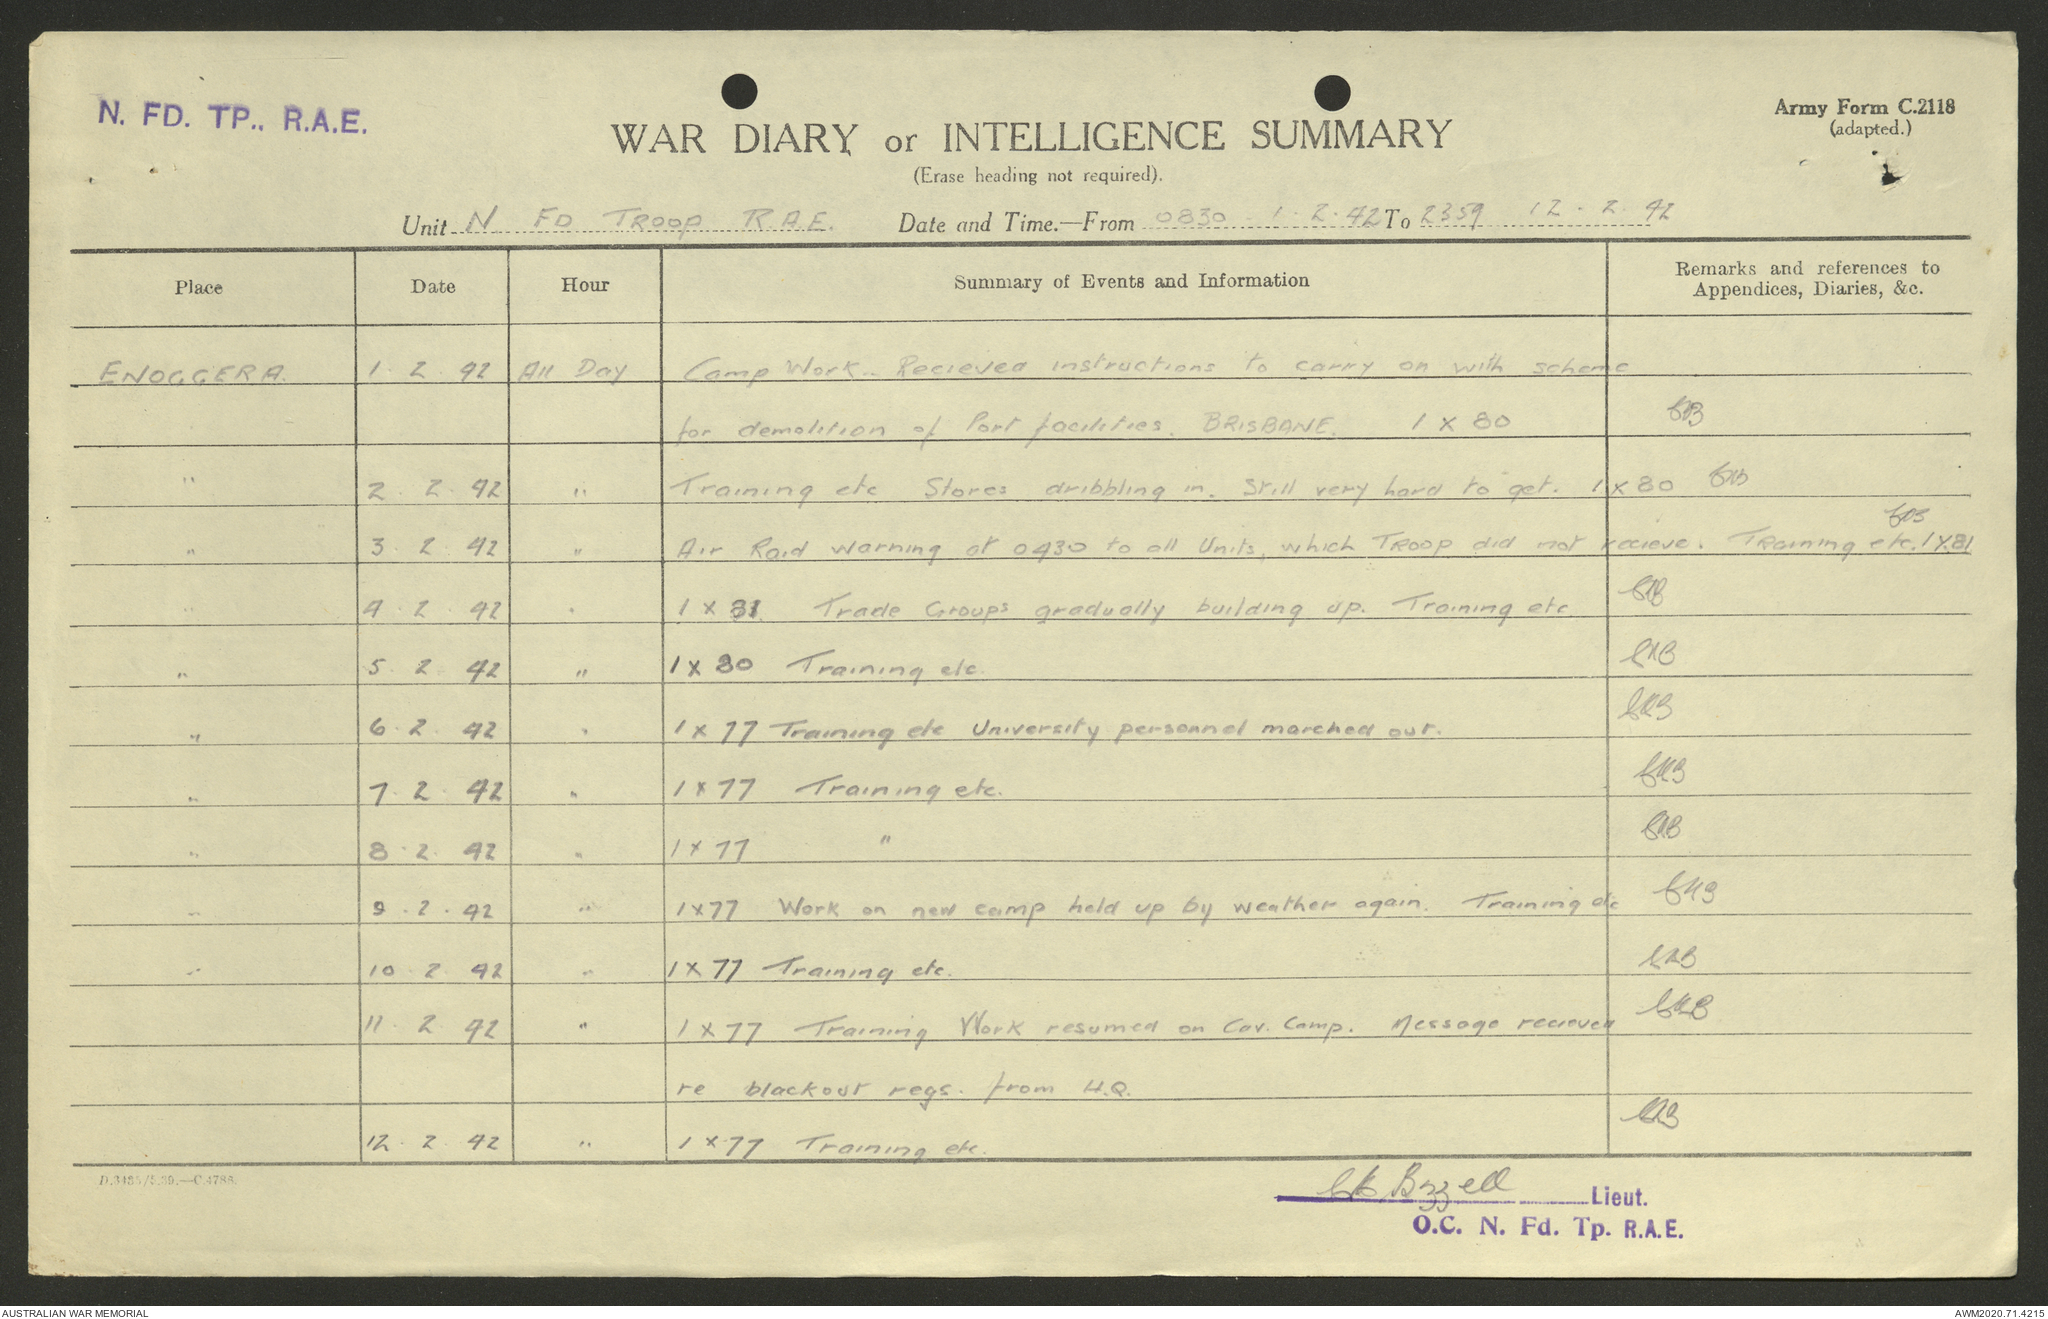 N. FD. TP., R.A.E.
Army Form C.2118
(adapted.)
WAR DIARY or INTELLIGENCE SUMMARY
(Erase heading not required).
Unit N FD TROOP R.A.E. Date and Time.—From 0830 1.2.42 To 2359 12.2.42
Place Date Hour Summary of Events and Information Remarks and references to
Appendices, Diaries, &c.
ENOGGERA. 1.2.42 All Day Camp Work. Recieved instructions to carry on with scheme
for demolition of Port facilities. BRISBANE. 1 x 80
" 2.2.42 " Training etc Stores dribbling in. Still very hard to get. 1 x 80
" 3.2.42 " Air Raid warning at 0430 to all Units, which TROOP did not recieve. Training etc. 1 x 81
" 4.2.42 " 1 x 81 Trade Groups gradually building up. Training etc
" 5.2.42 " 1 x 80 Training etc.
" 6.2.42 " 1 x 77 Training etc University personnel marched out.
" 7.2.42 " 1 x 77 Training etc.
" 8.2.42 " 1 x 77 "
" 9.2.42 " 1 x 77 Work on new camp held up by weather again. Training etc
" 10.2.42 " 1 x 77 Training etc.
11.2.42 " 1 x 77 Training Work resumed on Cav. Camp. Message recieved
re blackout regs. from H.Q.
12.2.42 " 1 x 77 Training etc.
D.3435/5.39.—C.4788.
Lieut.
O.C. N. Fd. Tp. R.A.E.
AUSTRALIAN WAR MEMORIAL AWM2020.71.4215